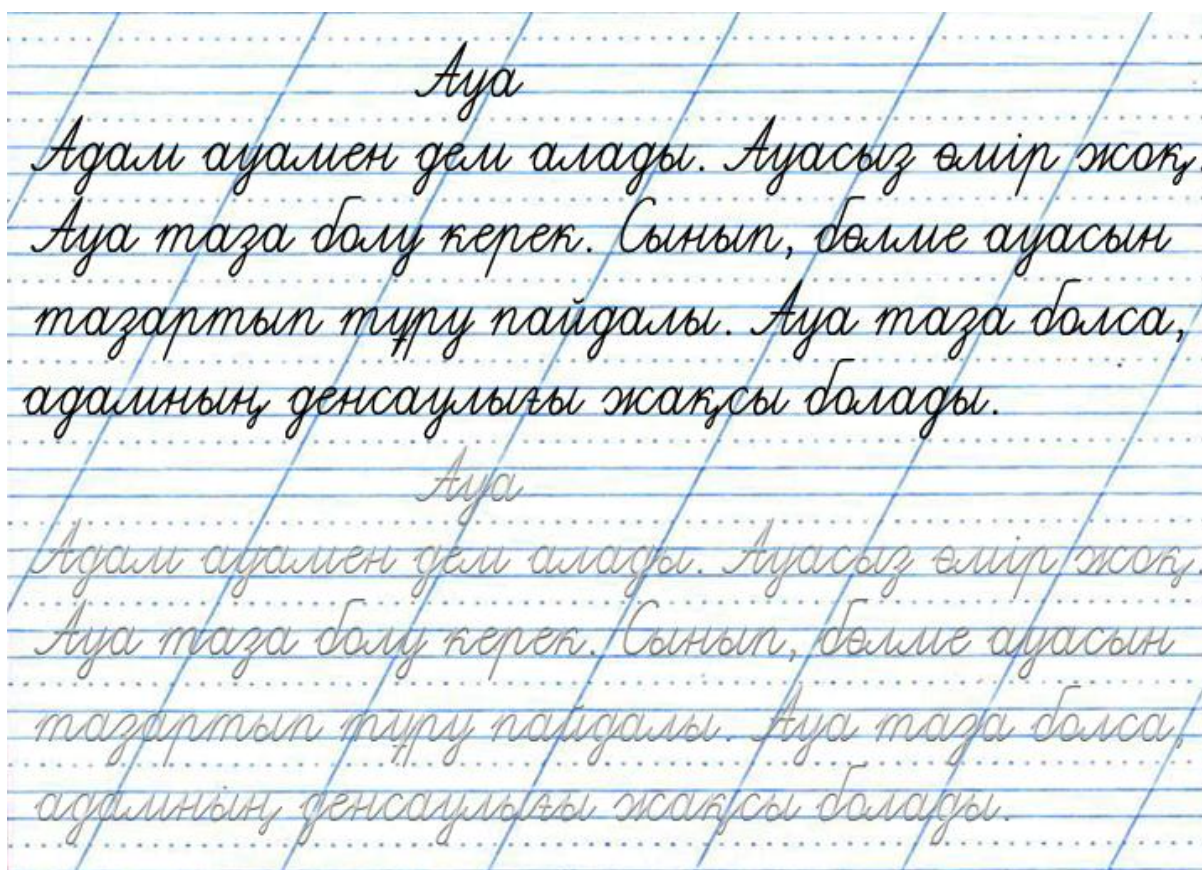 Ауа
Адам ауамен дем алады. Ауасыз өмір жоқ.
Ауа таза болу керек. Сынып, бөлме ауасын
тазартып тұру пайдалы. Ауа таза болса,
адамның денсаулығы жақсы болады.
Ауа
Адам ауамен дем алады. Ауасыз өмір жоқ.
Ауа таза болу керек. Сынып, бөлме ауасын
тазартып тұру пайдалы. Ауа таза болса,
адамның денсаулығы жақсы болады.